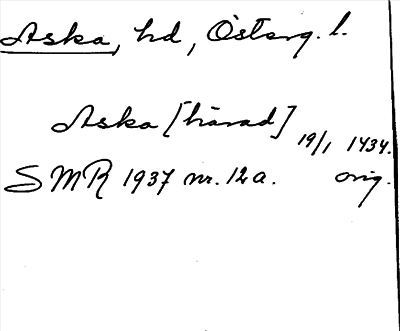 Aska, hd, Österg. l.
Aska [härad]
19/1 1434.
SMR 1937 nr. 12a. orig.